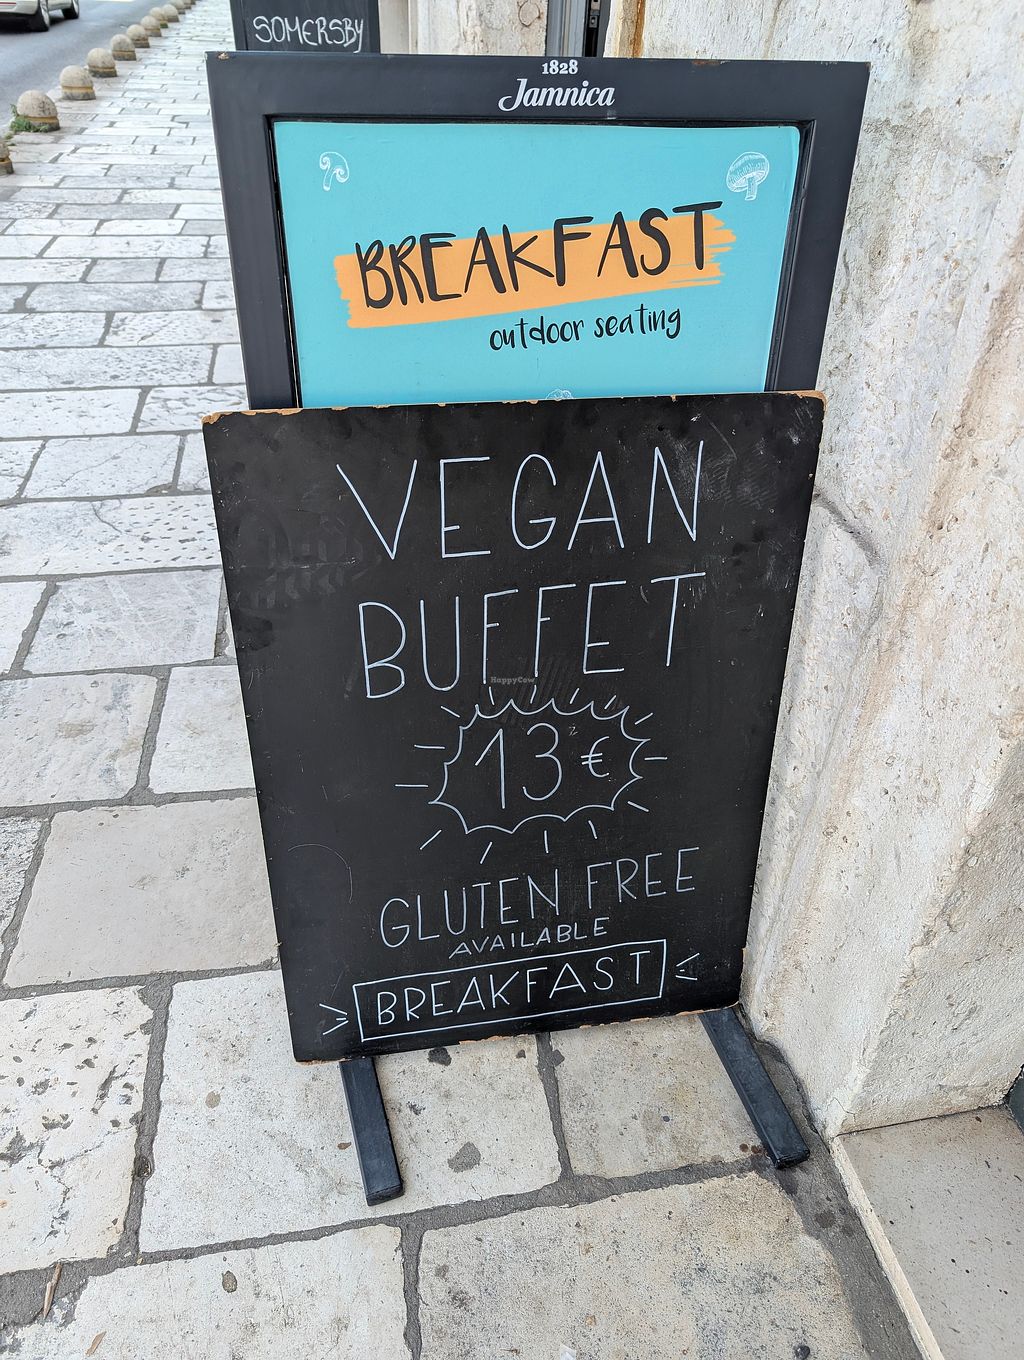 SOMERSBY
1828
Jamnica
BREAKFAST
outdoor seating
VEGAN
BUFFET
HappyCow
13 €
GLUTEN FREE
AVAILABLE
BREAKFAST